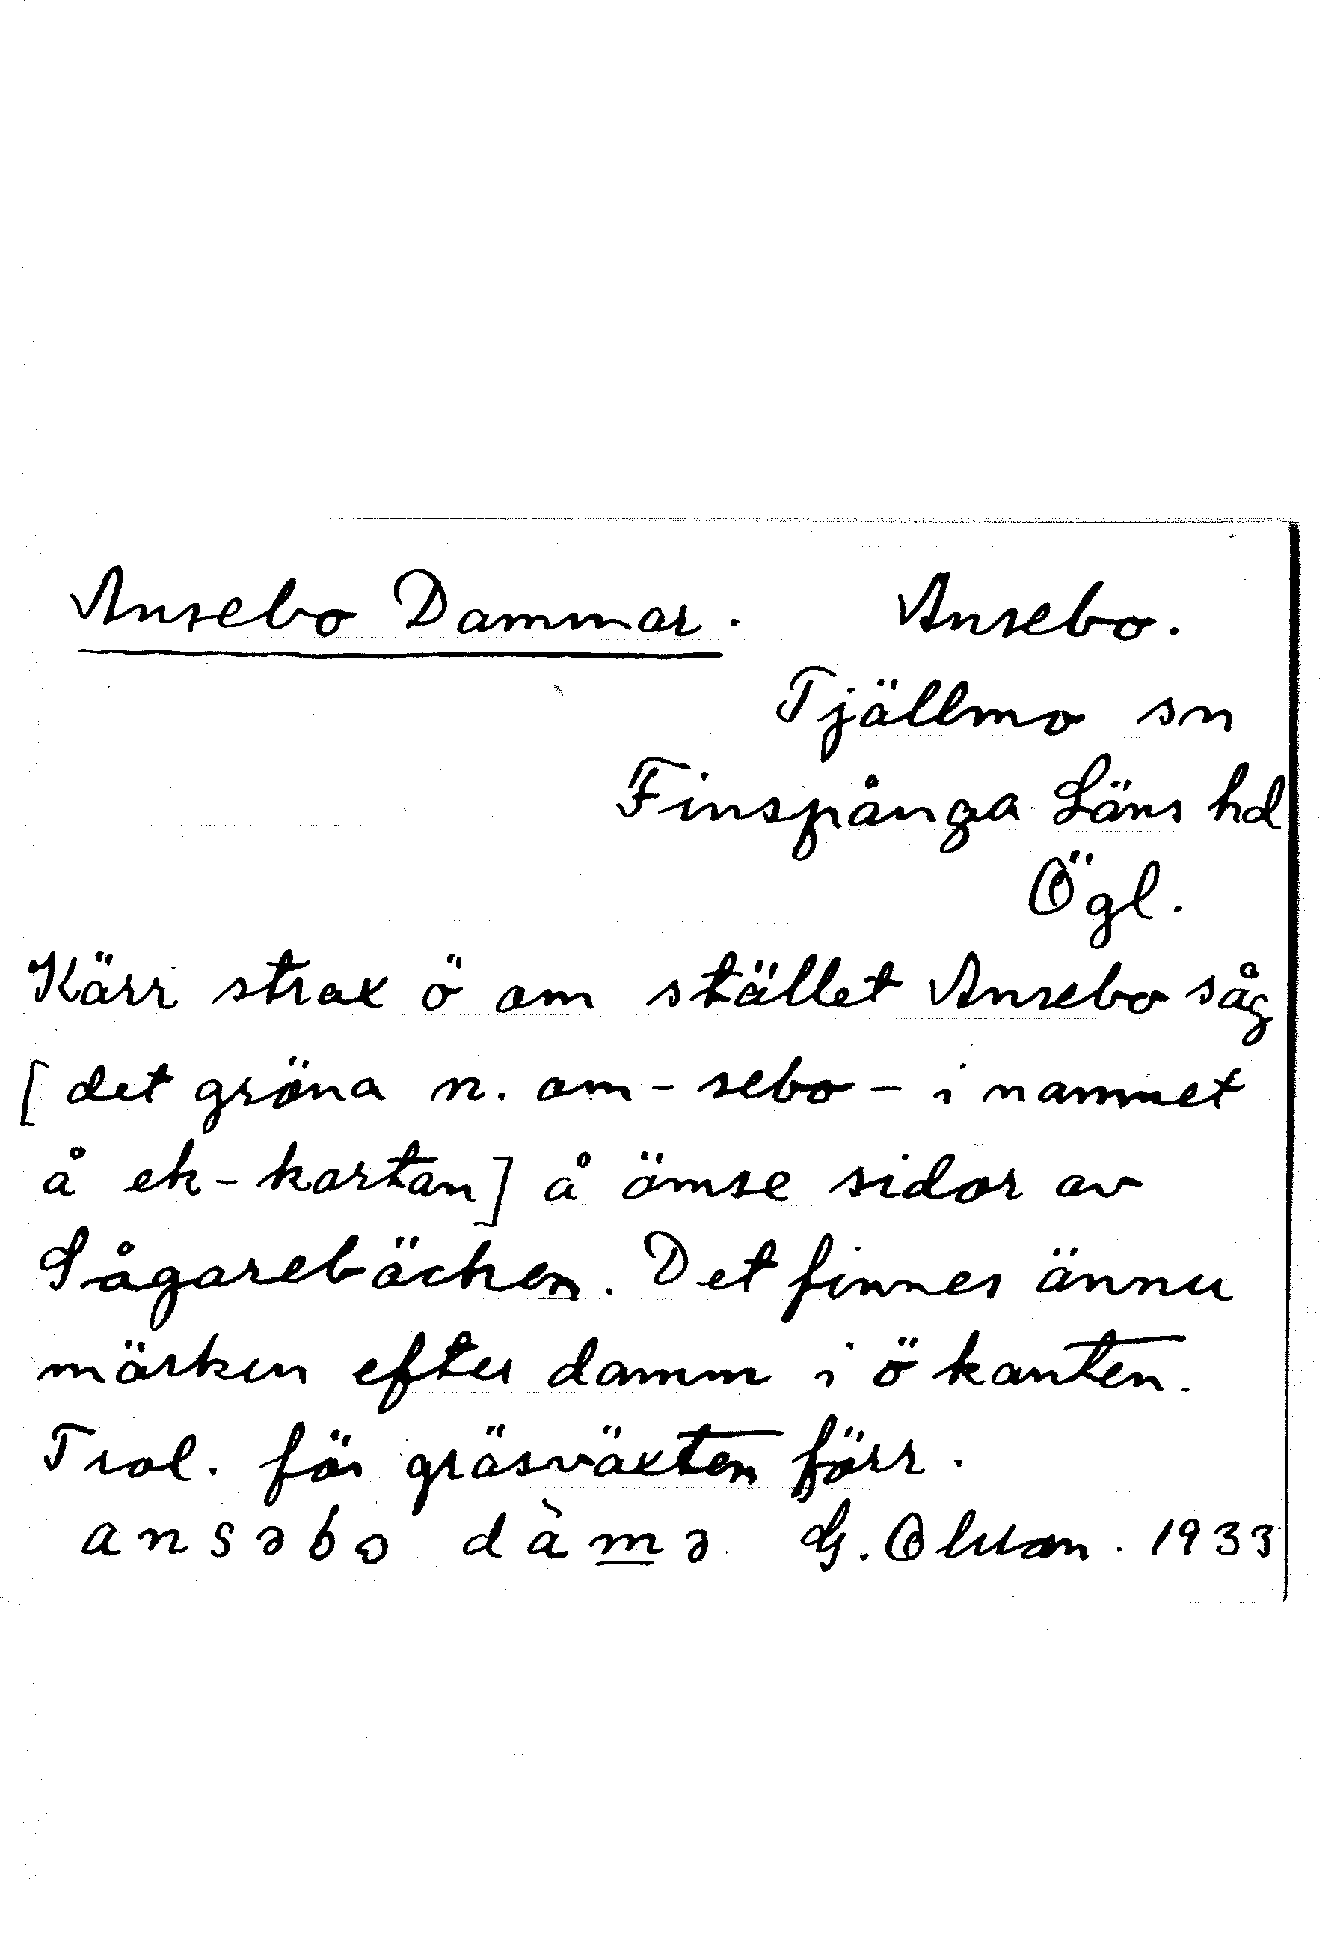 Ansebo Dammar. Ansebo.
Tjällmo sn
Finspånga Läns hd
Ögl.
Kärr strax ö om stället Ansebo såg
[det gröna n. om -sebo- i namnet
å ek-kartan] å ömse sidor av
Sågarebäcken. Det finnes ännu
märken efter damm i ö kanten.
Trol. för gräsväxten förr.
ansəbo dàmə G. Olsson. 1933